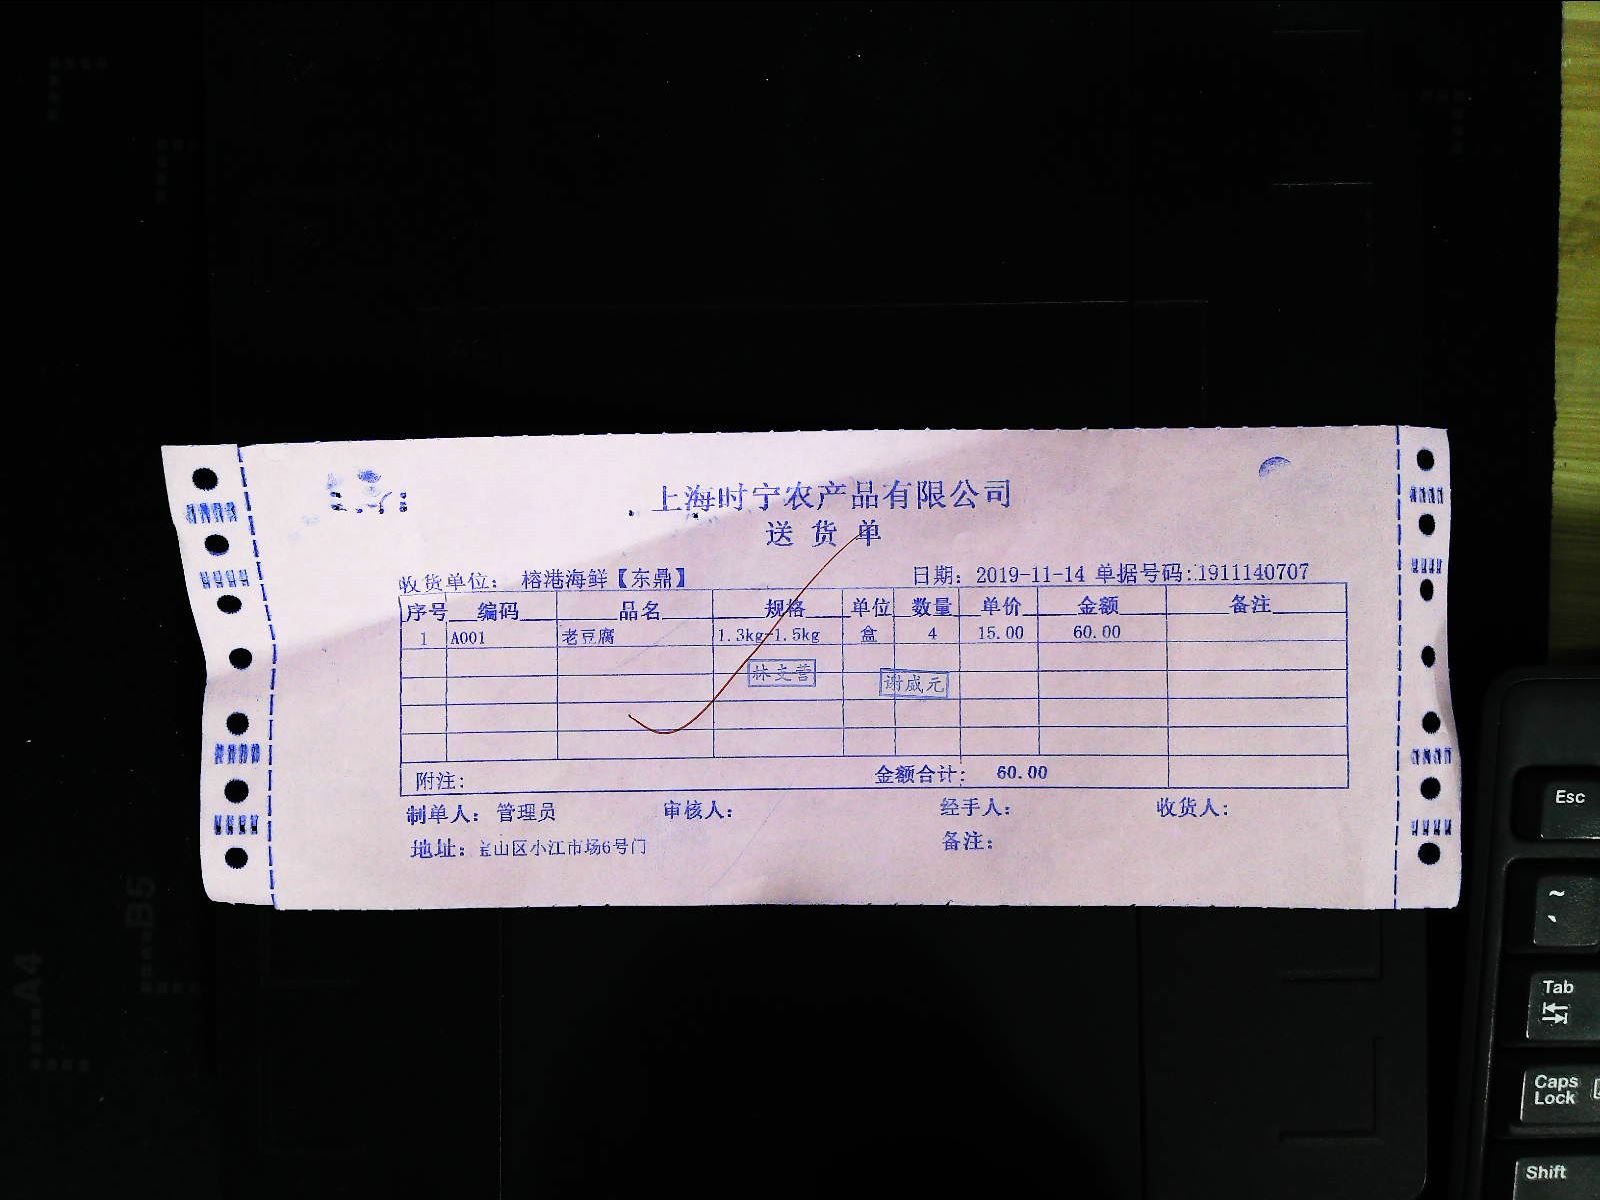 上海时宁农产品有限公司
送货单
收货单位： 榕港海鲜【东鼎】 日期：2019-11-14 单据号码：1911140707
序号 编码 品名 规格 单位 数量 单价 金额 备注
1 A001 老豆腐 1.3kg-1.5kg 盒 4 15.00 60.00
谢威元
附注： 金额合计： 60.00
制单人： 管理员 审核人： 经手人： 收货人：
地址：宝山区小江市场6号门 备注：
Esc
~
Tab
Caps Lock
Shift
B5
A4